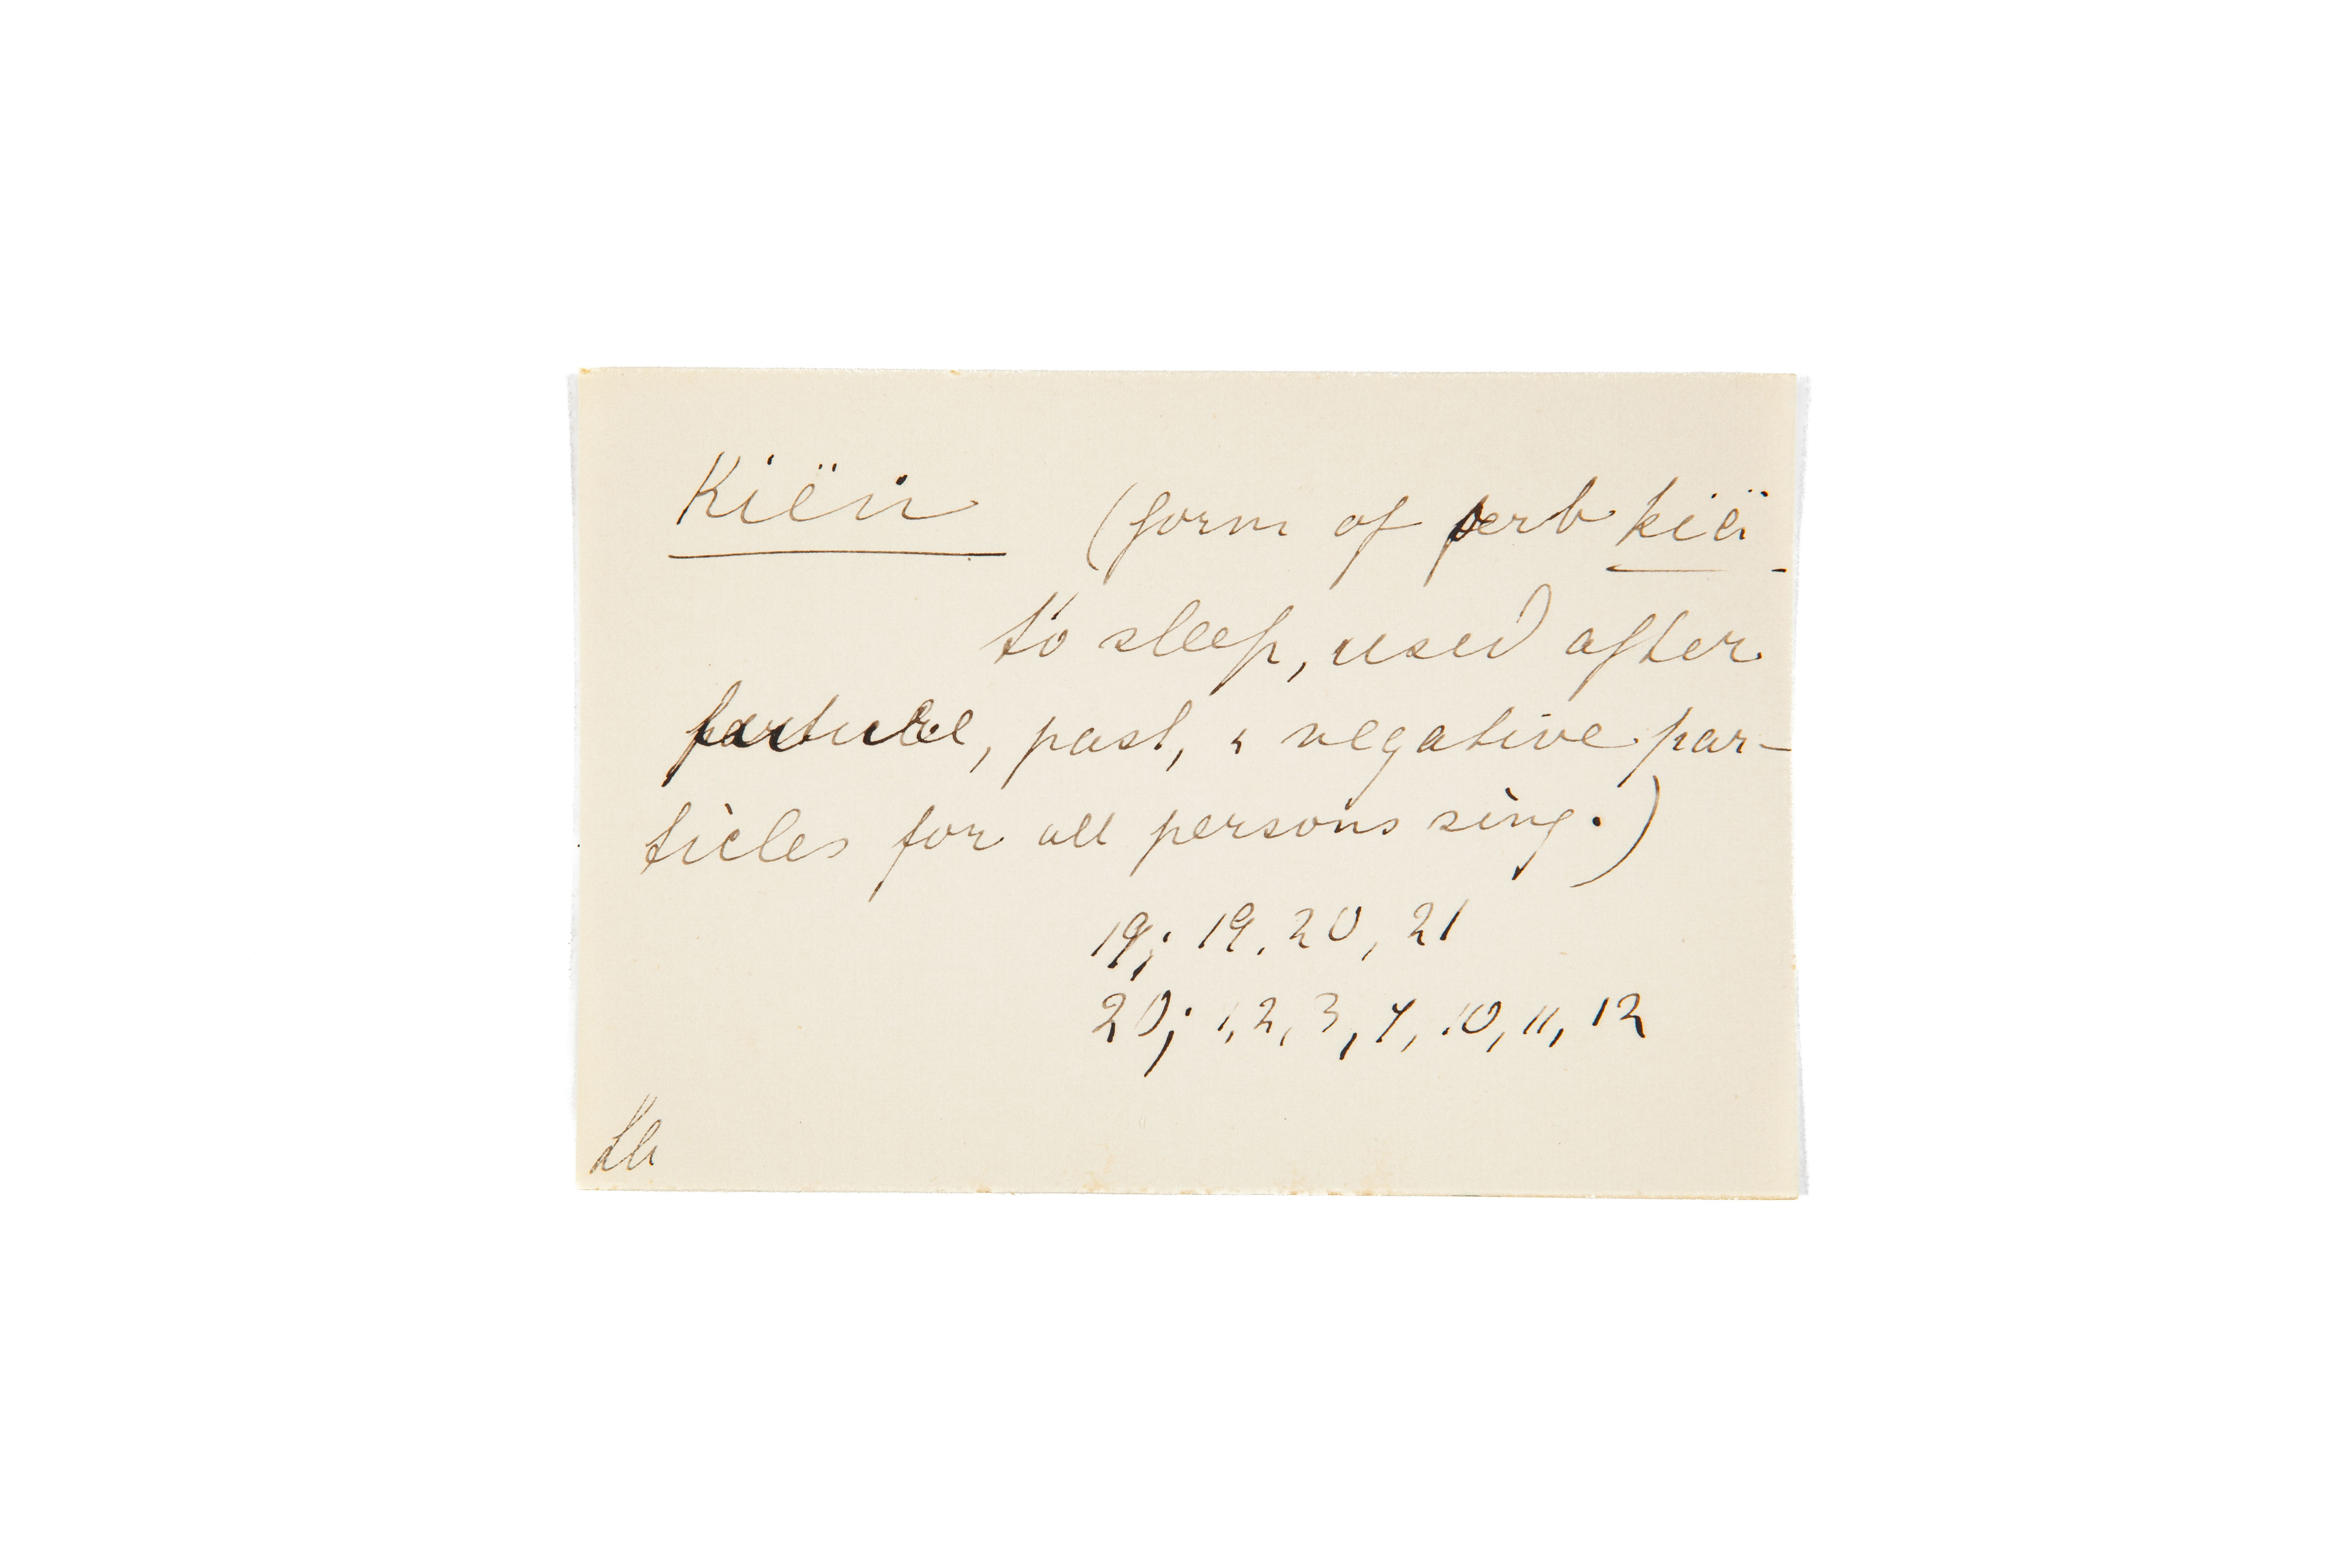 Kiëṅ (form of verb kiä-
to sleep, used after
future, past, & negative par-
ticles for all persons sing.)
19; 19, 20, 21
20; 1, 2, 3, 4, 10, 11, 12